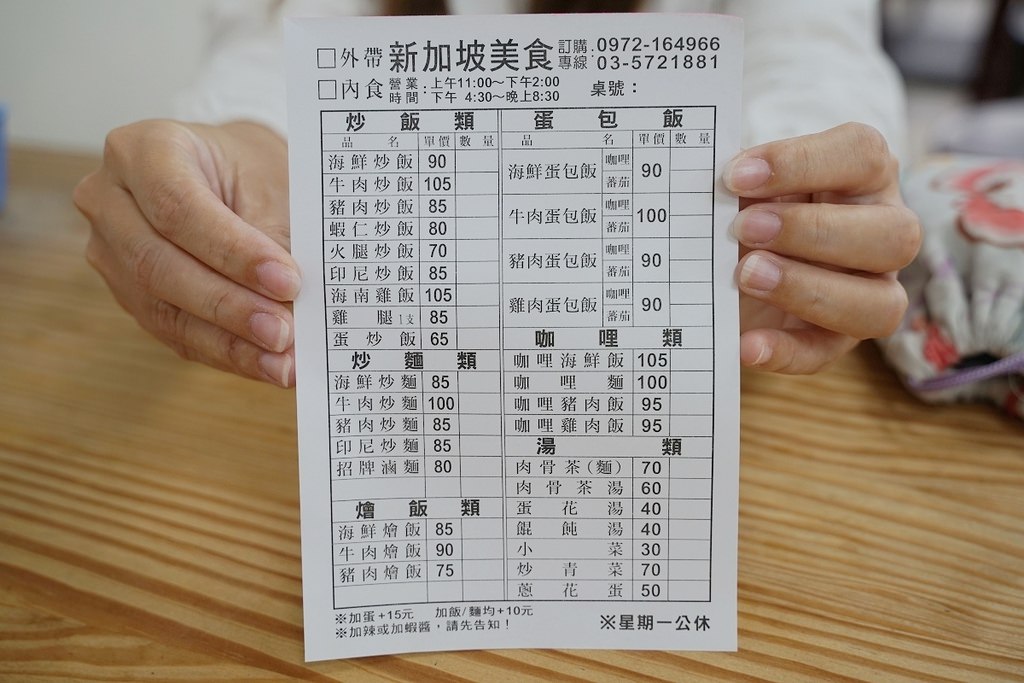 □外帶 新加坡美食 訂購專線:0972-164966
03-5721881
□內食 營業時間:上午11:00~下午2:00 桌號:
下午 4:30~晚上8:30
炒飯類
品名 單價 數量
海鮮炒飯 90
牛肉炒飯 105
豬肉炒飯 85
蝦仁炒飯 80
火腿炒飯 70
印尼炒飯 85
海南雞飯 105
雞腿1支 85
蛋炒飯 65
炒麵類
海鮮炒麵 85
牛肉炒麵 100
豬肉炒麵 85
印尼炒麵 85
招牌滷麵 80
燴飯類
海鮮燴飯 85
牛肉燴飯 90
豬肉燴飯 75
蛋包飯
品名 單價 數量
海鮮蛋包飯 咖哩 蕃茄 90
牛肉蛋包飯 咖哩 蕃茄 100
豬肉蛋包飯 咖哩 蕃茄 90
雞肉蛋包飯 咖哩 蕃茄 90
咖哩類
咖哩海鮮飯 105
咖哩麵 100
咖哩豬肉飯 95
咖哩雞肉飯 95
湯類
肉骨茶(麵) 70
肉骨茶湯 60
蛋花湯 40
餛飩湯 40
小菜 30
炒青菜 70
蔥花蛋 50
※加蛋+15元 加飯/麵均+10元
※加辣或加蝦醬,請先告知!
※星期一公休